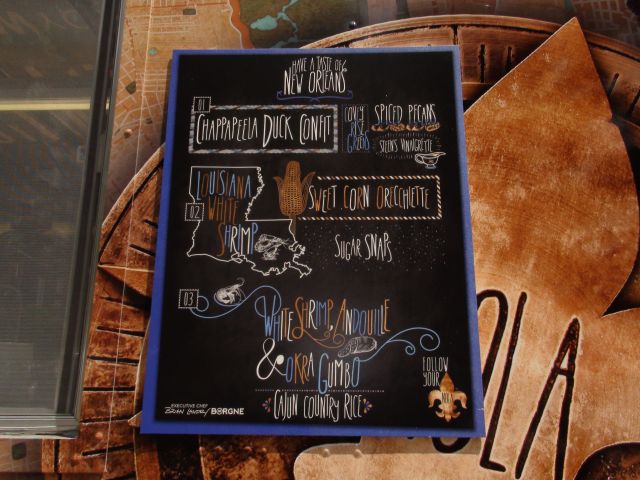 HAVE A TASTE OF
NEW ORLEANS
01
CHAPPAPEELA DUCK CONFIT
COVEY
RISE
GREENS
SPICED PECANS
STEEN'S VINAIGRETTE
LOUISIANA
WHITE
02
SHRIMP
SWEET CORN ORECCHIETTE
SUGAR SNAPS
03
WHITE SHRIMP, ANDOUILLE
& OKRA GUMBO
CAJUN COUNTRY RICE
FOLLOW
YOUR
NOLA
EXECUTIVE CHEF
BRIAN LANDRY/BORGNE
OLA